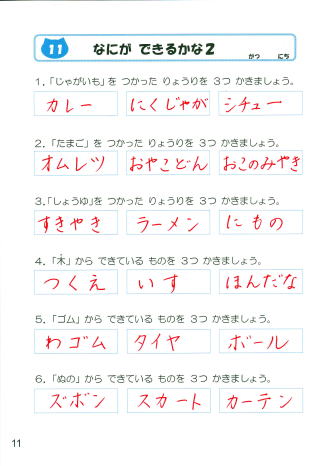 11 なにが できるかな2
がつ にち
1.「じゃがいも」を つかった りょうりを 3つ かきましょう。
カレー にくじゃが シチュー
2.「たまご」を つかった りょうりを 3つ かきましょう。
オムレツ おやこどん おこのみやき
3.「しょうゆ」を つかった りょうりを 3つ かきましょう。
すきやき ラーメン にもの
4.「木」から できている ものを 3つ かきましょう。
つくえ いす ほんだな
5.「ゴム」から できている ものを 3つ かきましょう。
わゴム タイヤ ボール
6.「ぬの」から できている ものを 3つ かきましょう。
ズボン スカート カーテン
11